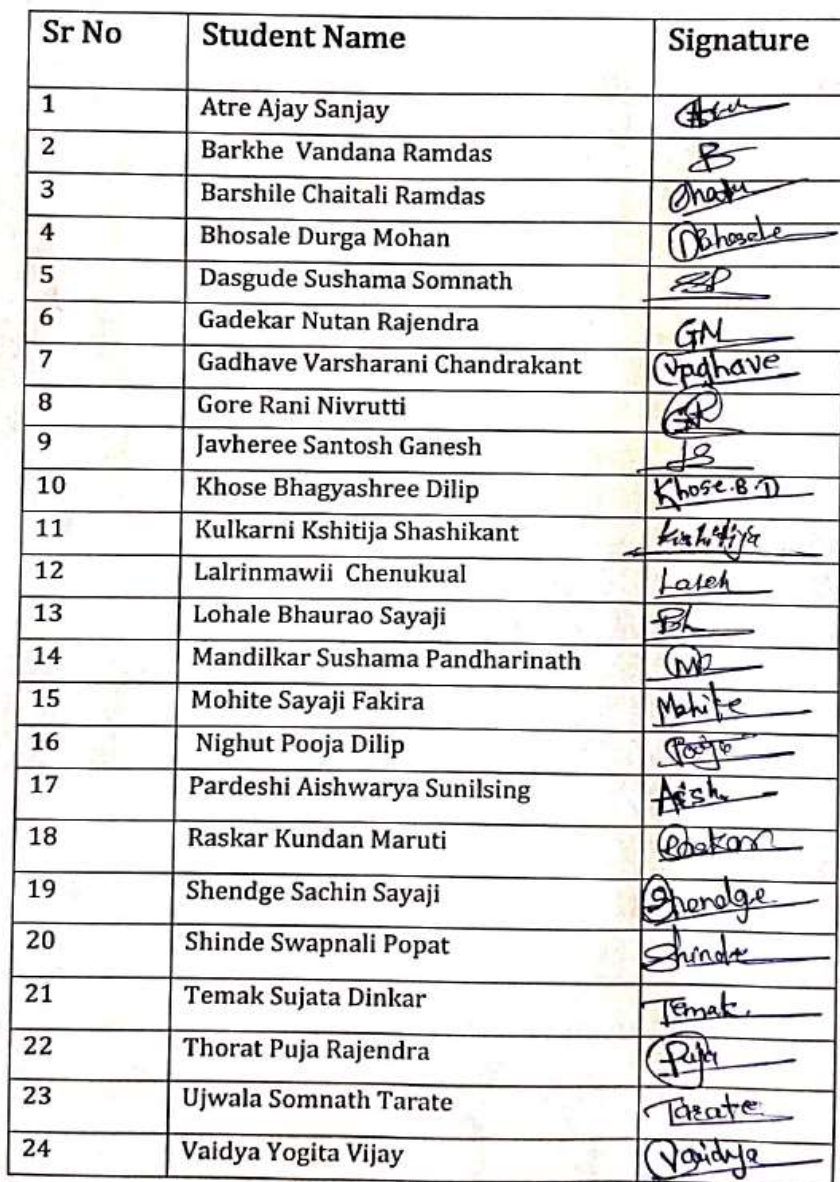 Sr No Student Name Signature
1 Atre Ajay Sanjay
2 Barkhe Vandana Ramdas B
3 Barshile Chaitali Ramdas
4 Bhosale Durga Mohan DBhosale
5 Dasgude Sushama Somnath
6 Gadekar Nutan Rajendra GN
7 Gadhave Varsharani Chandrakant
8 Gore Rani Nivrutti GR
9 Javheree Santosh Ganesh JS
10 Khose Bhagyashree Dilip Khose.B.D
11 Kulkarni Kshitija Shashikant Kshitija
12 Lalrinmawii Chenukual
13 Lohale Bhaurao Sayaji BL
14 Mandilkar Sushama Pandharinath
15 Mohite Sayaji Fakira Mohite
16 Nighut Pooja Dilip Pooja
17 Pardeshi Aishwarya Sunilsing Aish
18 Raskar Kundan Maruti
19 Shendge Sachin Sayaji Shendge
20 Shinde Swapnali Popat Shinde
21 Temak Sujata Dinkar Temak.
22 Thorat Puja Rajendra Puja
23 Ujwala Somnath Tarate Tarate
24 Vaidya Yogita Vijay Vaidya